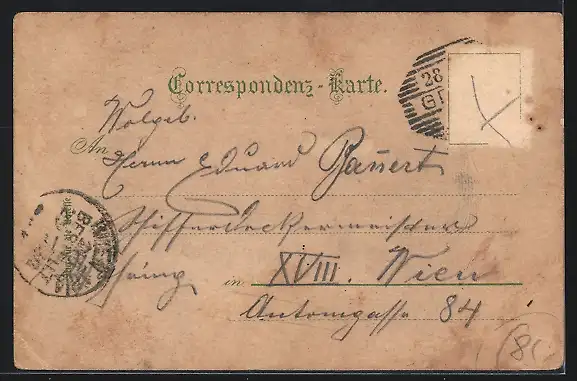 Correspondenz-Karte.
28
Wolgeb.
An Herrn Eduard Bauert
Schifferdeckermeister
in XVIII. Wien
Antonigasse 84
(86